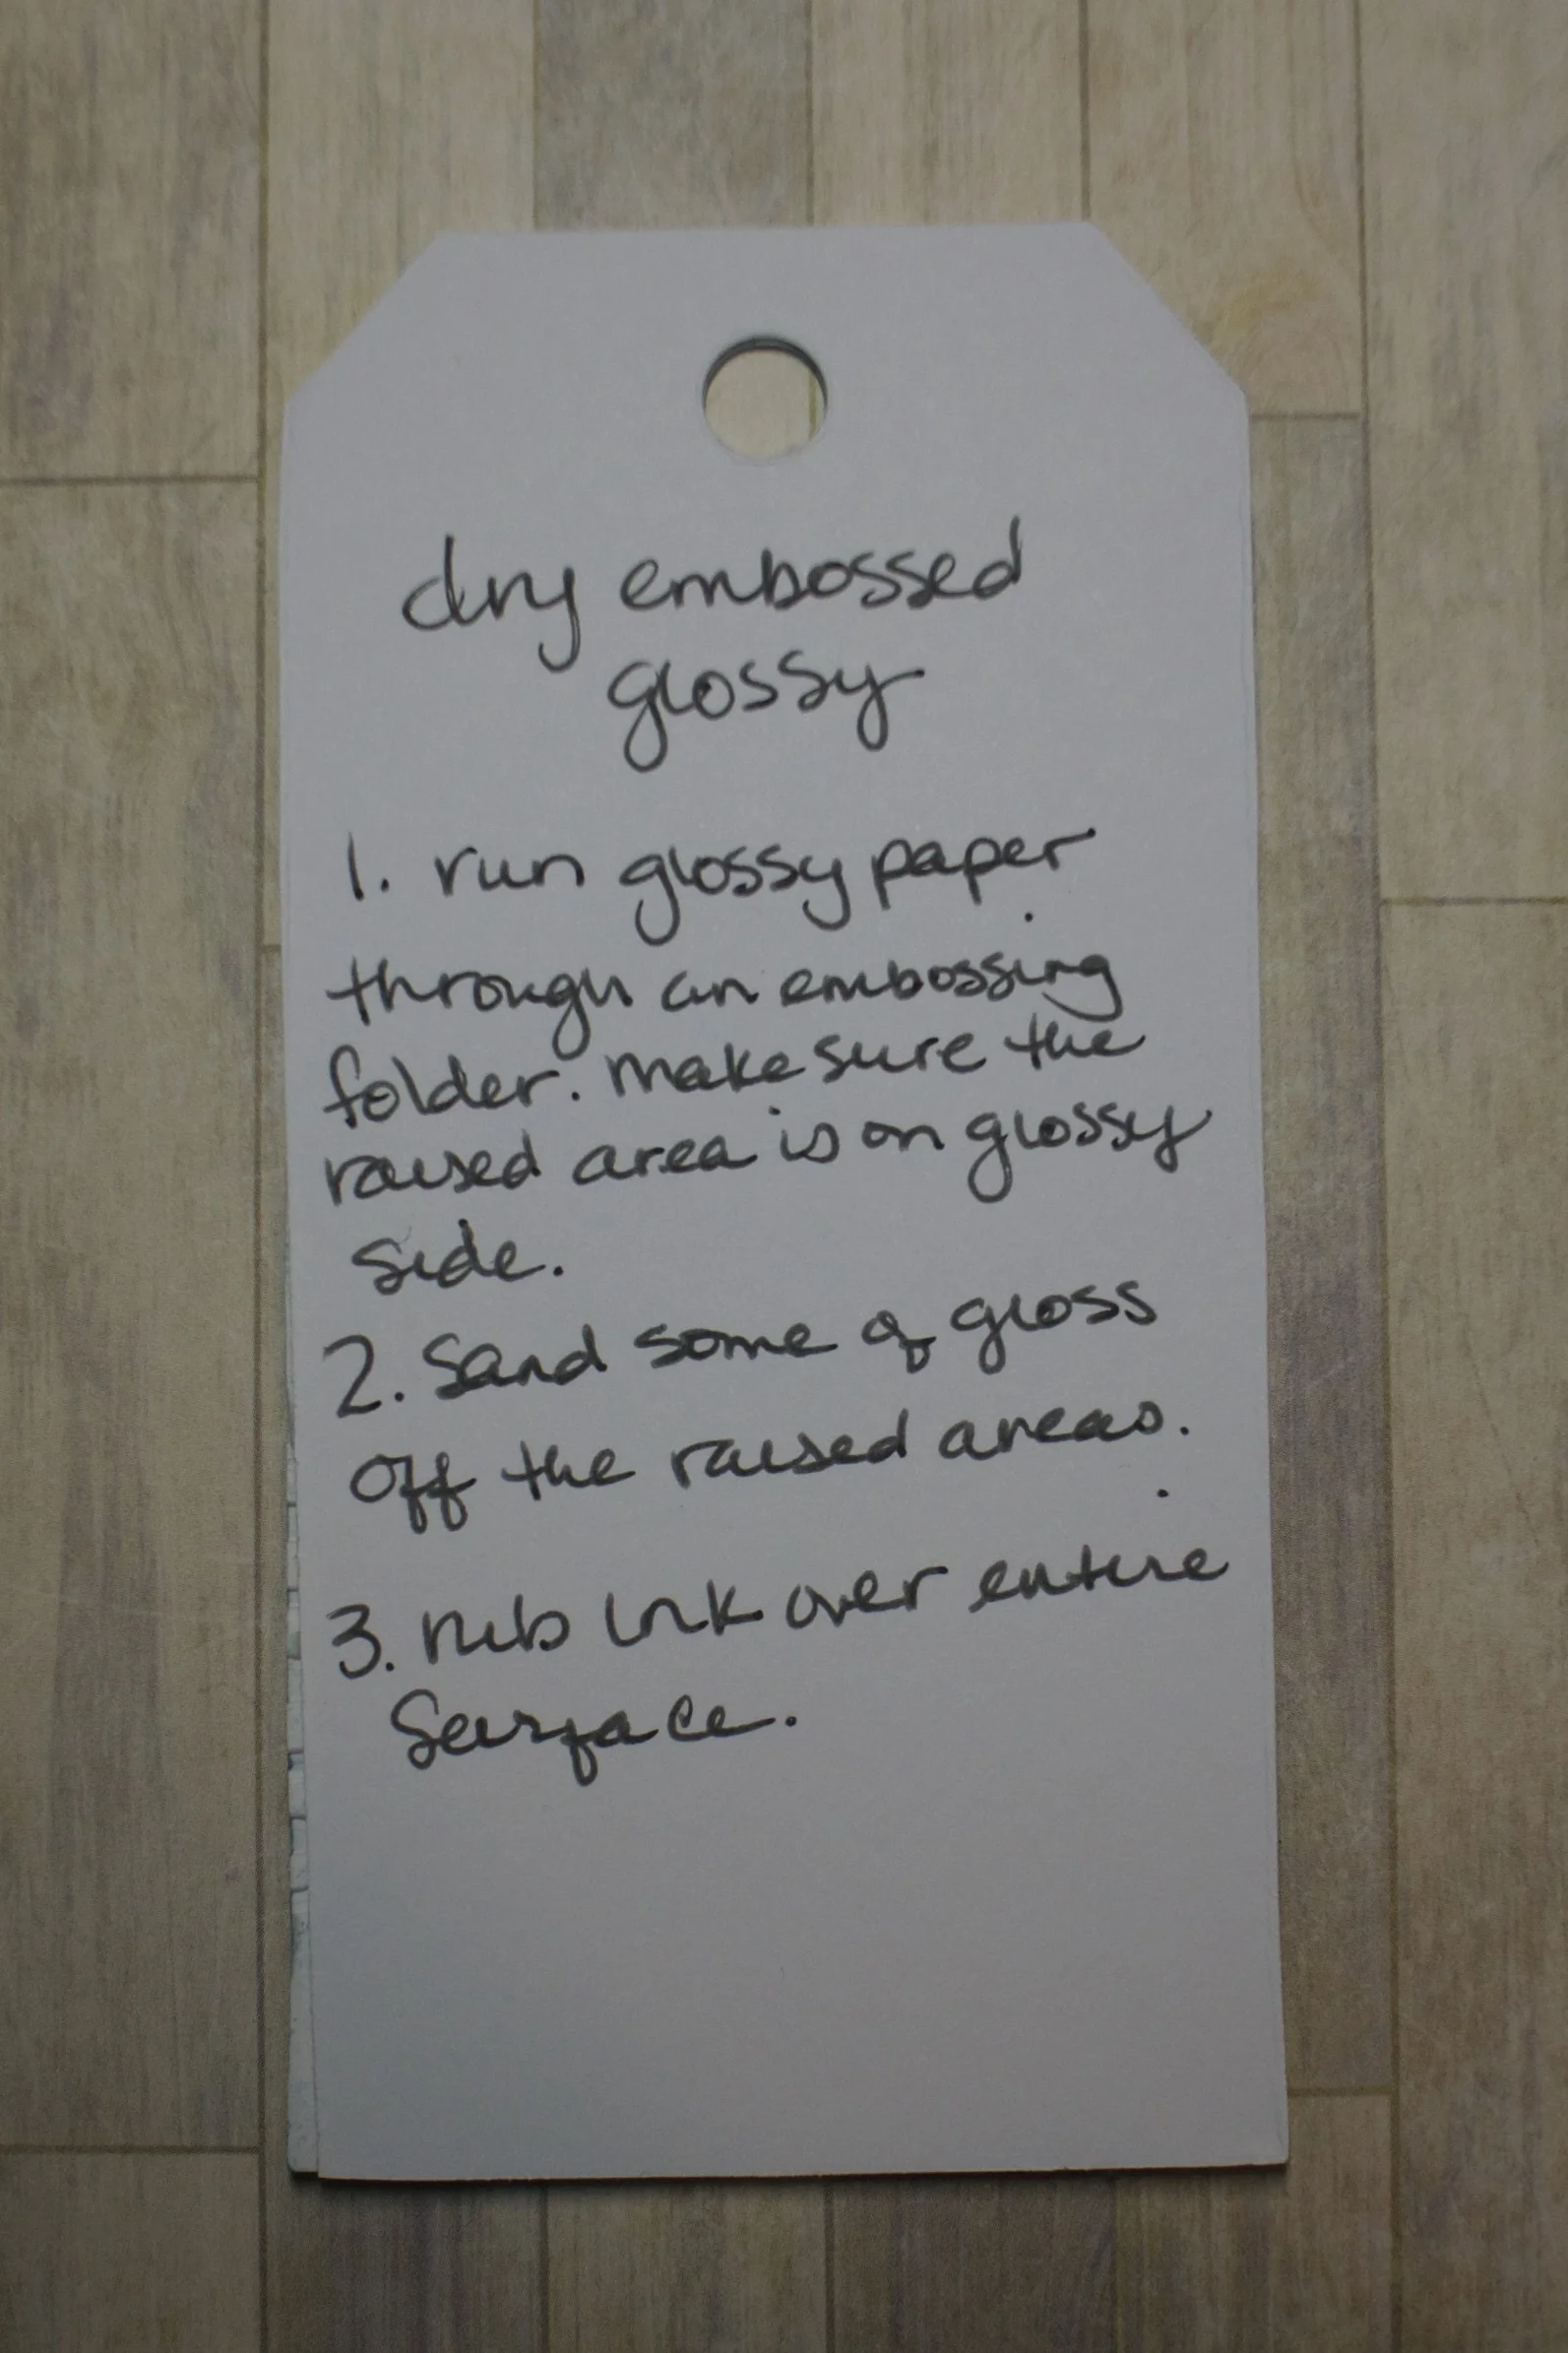 dry embossed
glossy
1. run glossy paper
through an embossing
folder. make sure the
raised area is on glossy
side.
2. Sand some of gloss
off the raised areas.
3. rub ink over entire
Surface.